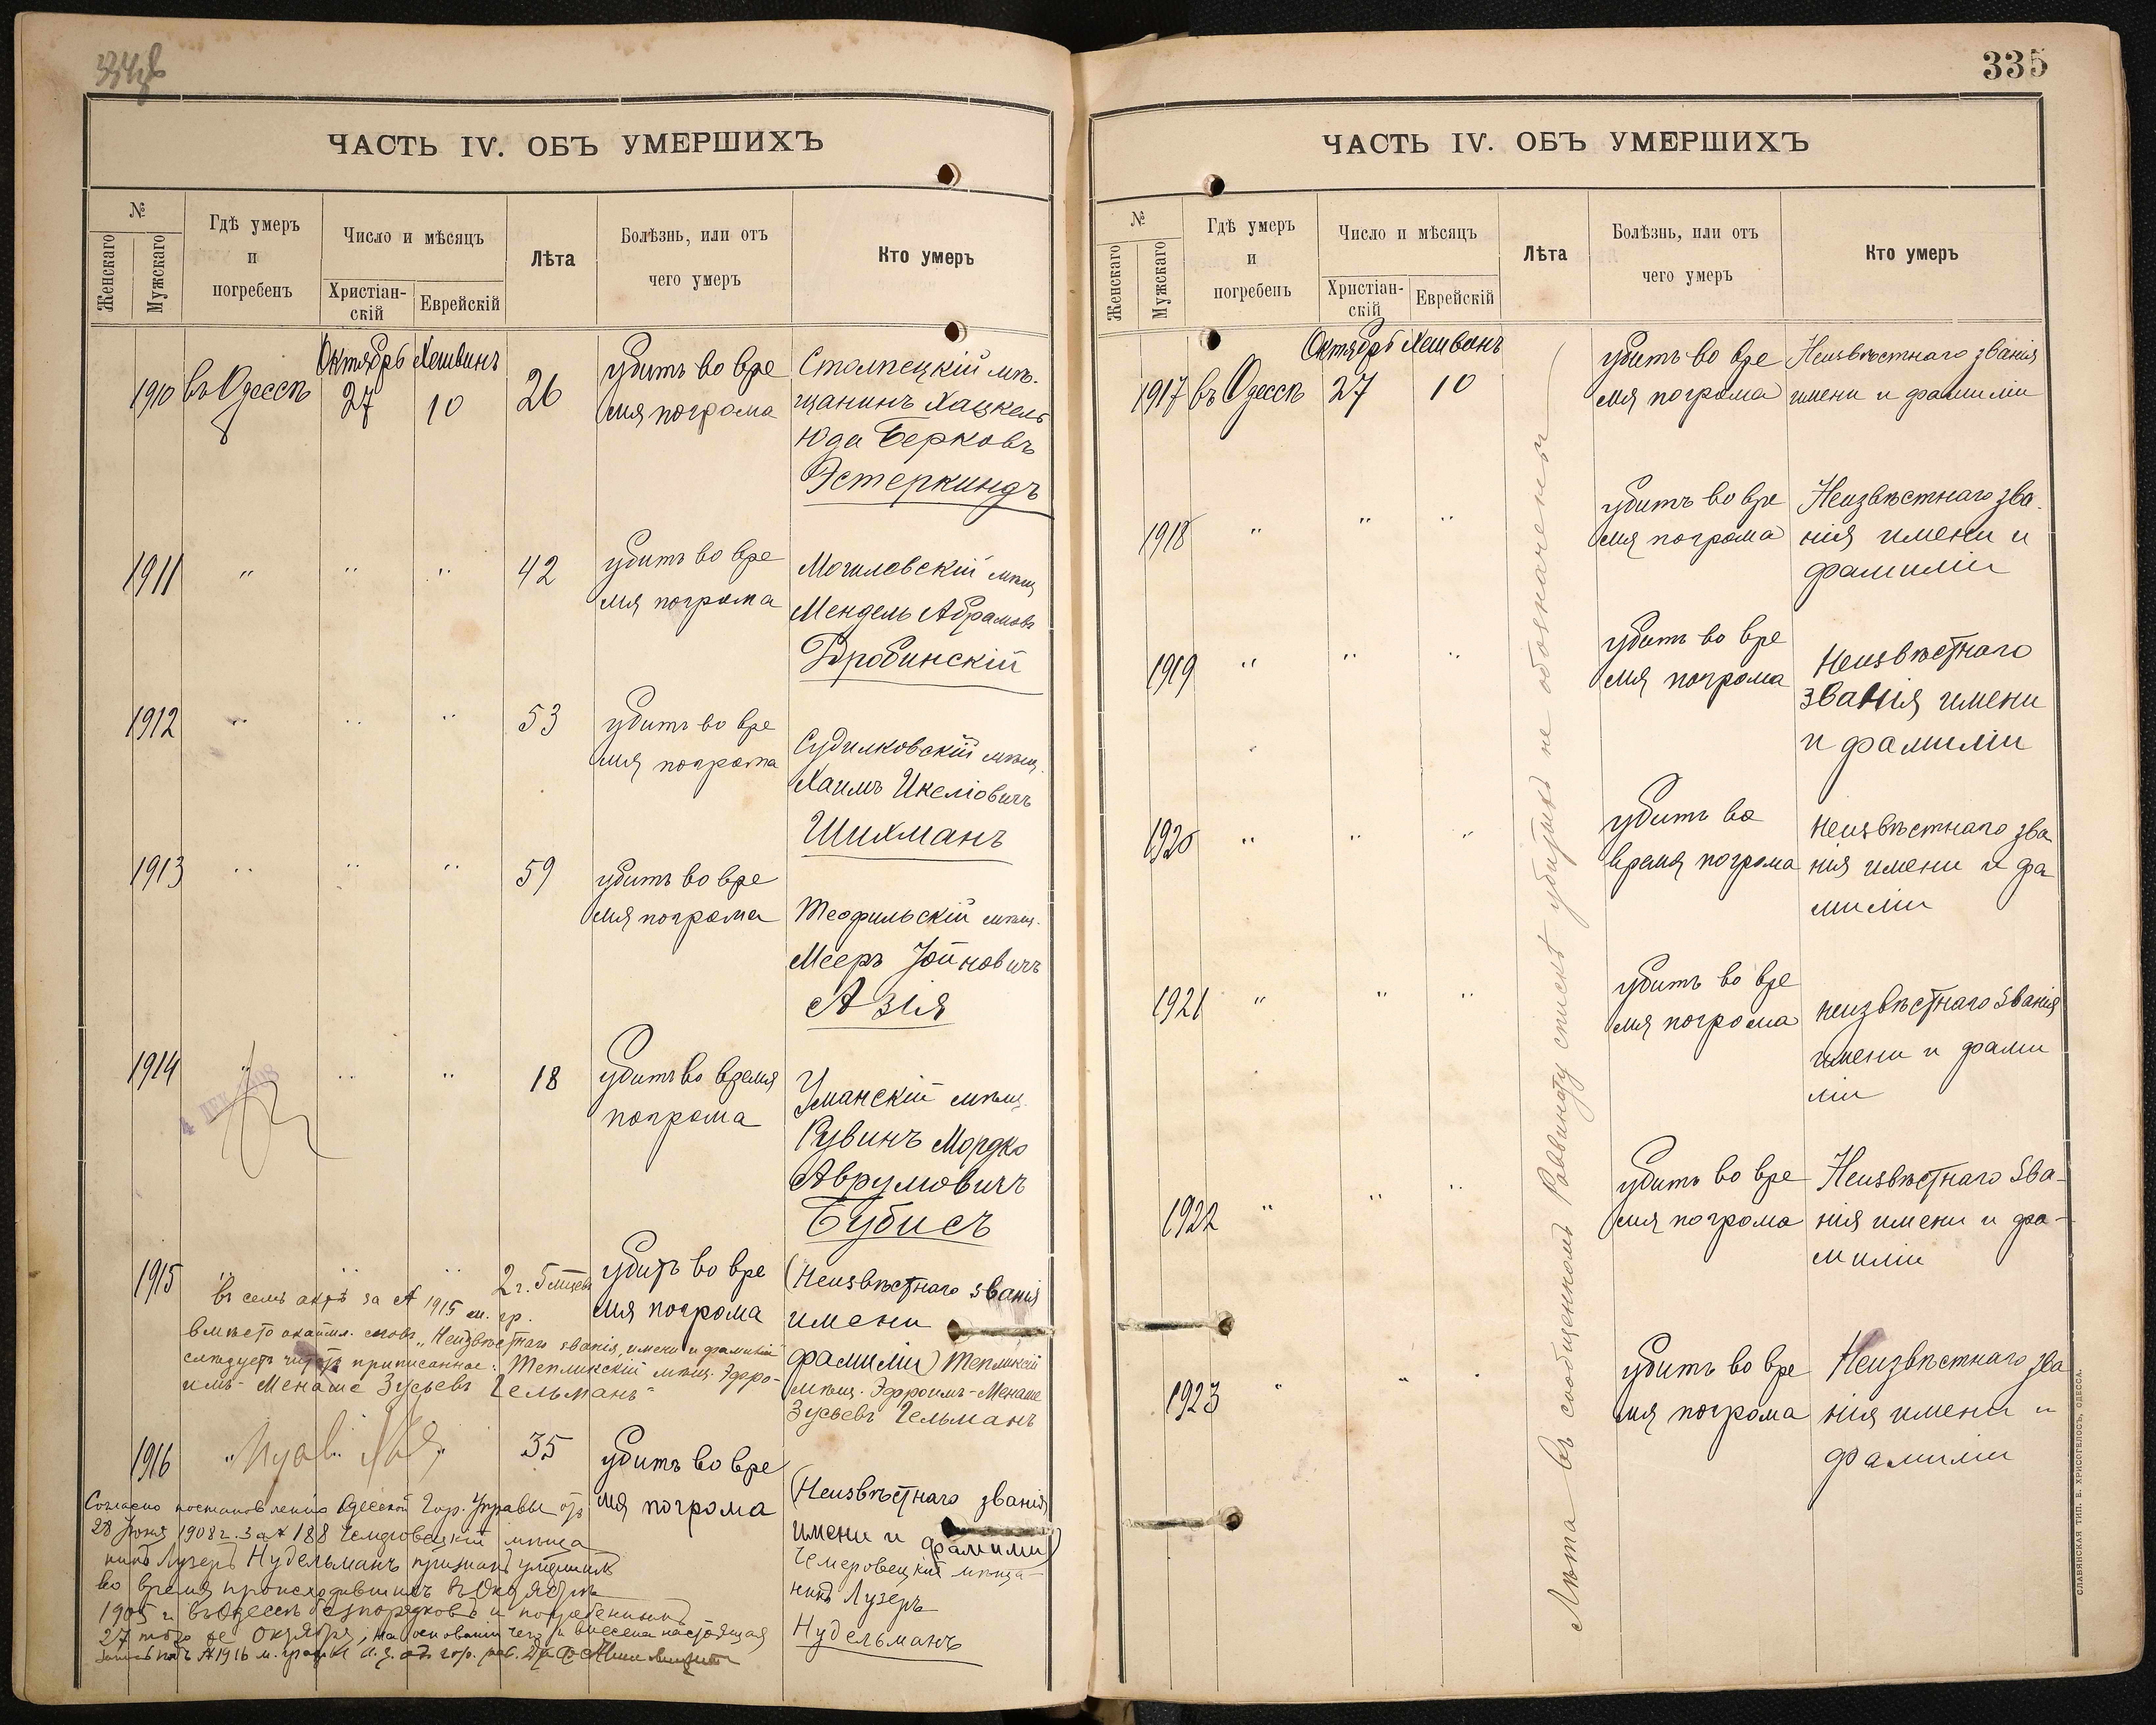 ЧАСТЬ IV. ОБЪ УМЕРШИХЪ
№
Женскаго
Мужскаго
Гдѣ умеръ
и
погребенъ
Число и мѣсяцъ
Христіан-
скій
Еврейскій
Лѣта
Болѣзнь, или отъ
чего умеръ
Кто умеръ
Октябрь Хешвинъ
1910 въ Одессѣ 27 10 26
убитъ во вре
мя погрома
Столпецкій мѣ-
щанинъ Хацкель
Юда Берковъ
Эстеркиндъ
1911 " " " 42
убитъ во вре
мя погрома
Могиловскій мѣщ.
Мендель Абрамовъ
Бробинскій
1912 " " " 53
убитъ во вре
мя погрома
Судилковскій мѣщ.
Хаимъ Икеліовичъ
Шихманъ
1913 " " " 59
убитъ во вре
мя погрома
Теофильскій мѣщ.
Мееръ Іойновичъ
Азія
1914 " " " 18
убитъ во время
погрома
Уманскій мѣщ.
Рувинъ Мордко
Аврумовичъ
Бубисъ
1915 " " " 2 г. 5 мѣсяц
убитъ во вре
мя погрома
(Неизвѣстнаго званія
имени
фамиліи) Тепликскій
мѣщ. Эфроимъ-Менаше
Зусьевъ Гельманъ
въ семъ актѣ за № 1915 м. гр.
вмѣсто окайм. словъ "Неизвѣстнаго званія, имени и фамиліи
слѣдуетъ читать приписанное: Тепликскій мѣщ. Эфро-
имъ-Менаше Зусьевъ Гельманъ"
1916 35
убитъ во вре
мя погрома
(Неизвѣстнаго званія
имени и фамиліи)
Чемеровецкій мѣща-
нинъ Лузеръ
Нудельманъ
Согласно постановленію Одесской Гор. Управы отъ
28 Іюня 1908 г. за № 188 Чемеровецкій мѣща
нинъ Лузеръ Нудельманъ признанъ умершимъ
во время происходившихъ въ Октябрѣ
1905 г. въ Одессѣ безпорядковъ и погребеннымъ
27 того же Октября, на основаніи чего и внесена настоящая
запись подъ № 1916 м. графы
335
ЧАСТЬ IV. ОБЪ УМЕРШИХЪ
№
Женскаго
Мужскаго
Гдѣ умеръ
и
погребенъ
Число и мѣсяцъ
Христіан-
скій
Еврейскій
Лѣта
Болѣзнь, или отъ
чего умеръ
Кто умеръ
Октябрь Хешванъ
1917 въ Одессѣ 27 10
убитъ во вре
мя погрома
Неизвѣстнаго званія
имени и фамиліи
1918 " " "
убитъ во вре
мя погрома
Неизвѣстнаго зва-
нія имени и
фамиліи
1919 " " "
убитъ во вре
мя погрома
Неизвѣстнаго
званія имени
и фамиліи
1920 " " "
убитъ во
время погрома
неизвѣстнаго зва
нія имени и фа
миліи
1921 " " "
убитъ во вре
мя погрома
неизвѣстнаго званія
имени и фами
ліи
1922 " " "
убитъ во вре
мя погрома
Неизвѣстнаго зва-
нія имени и фа-
миліи
1923 " " "
убитъ во вре
мя погрома
Неизвѣстнаго зва
нія имени и
фамиліи
Лѣта въ сообщенномъ Раввинату спискѣ убитыхъ не обозначены
СЛАВЯНСКАЯ ТИП. Е. ХРИСОГЕЛОСЪ, ОДЕССА.